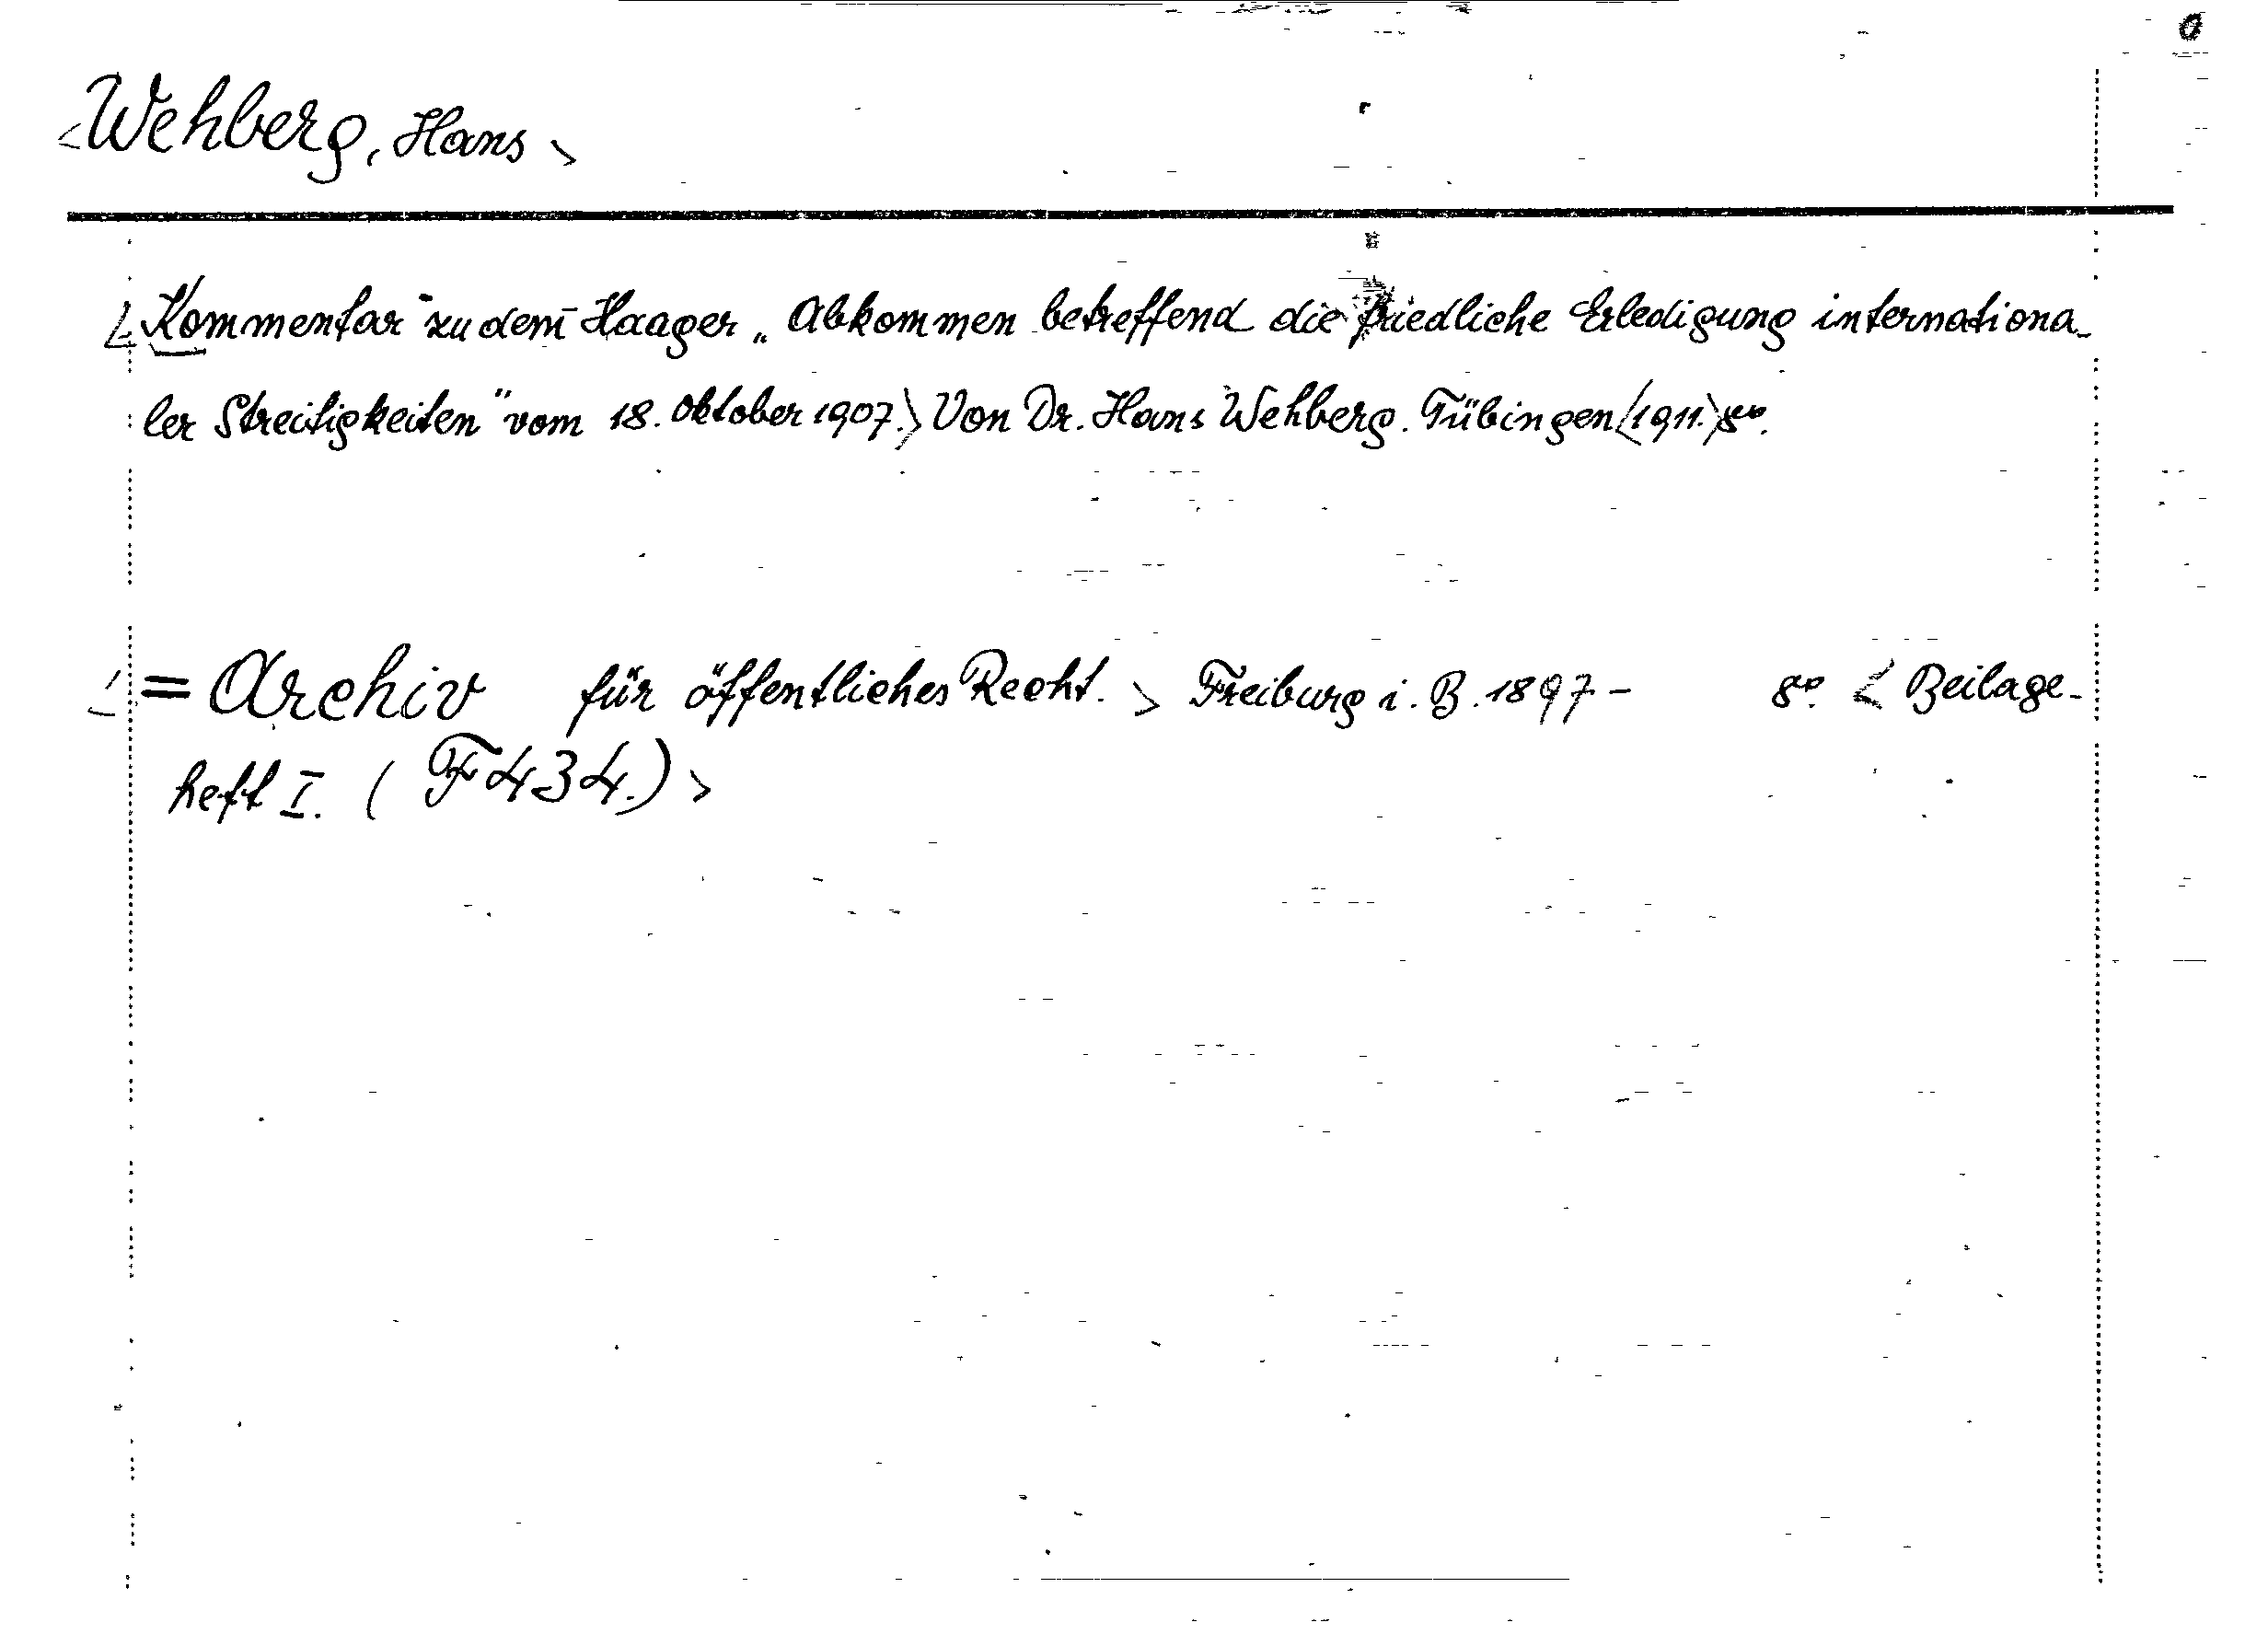 <Wehberg, Hans>
<Kommentar zu dem Haager „Abkommen betreffend die friedliche Erledigung internationa-
ler Streitigkeiten" vom 18. Oktober 1907.> Von Dr. Hans Wehberg. Tübingen <1911.> 8°.
<= Archiv für öffentliches Recht.> Freiburg i. B. 1897- 8°. <Beilage-
heft I. (F 434.)>